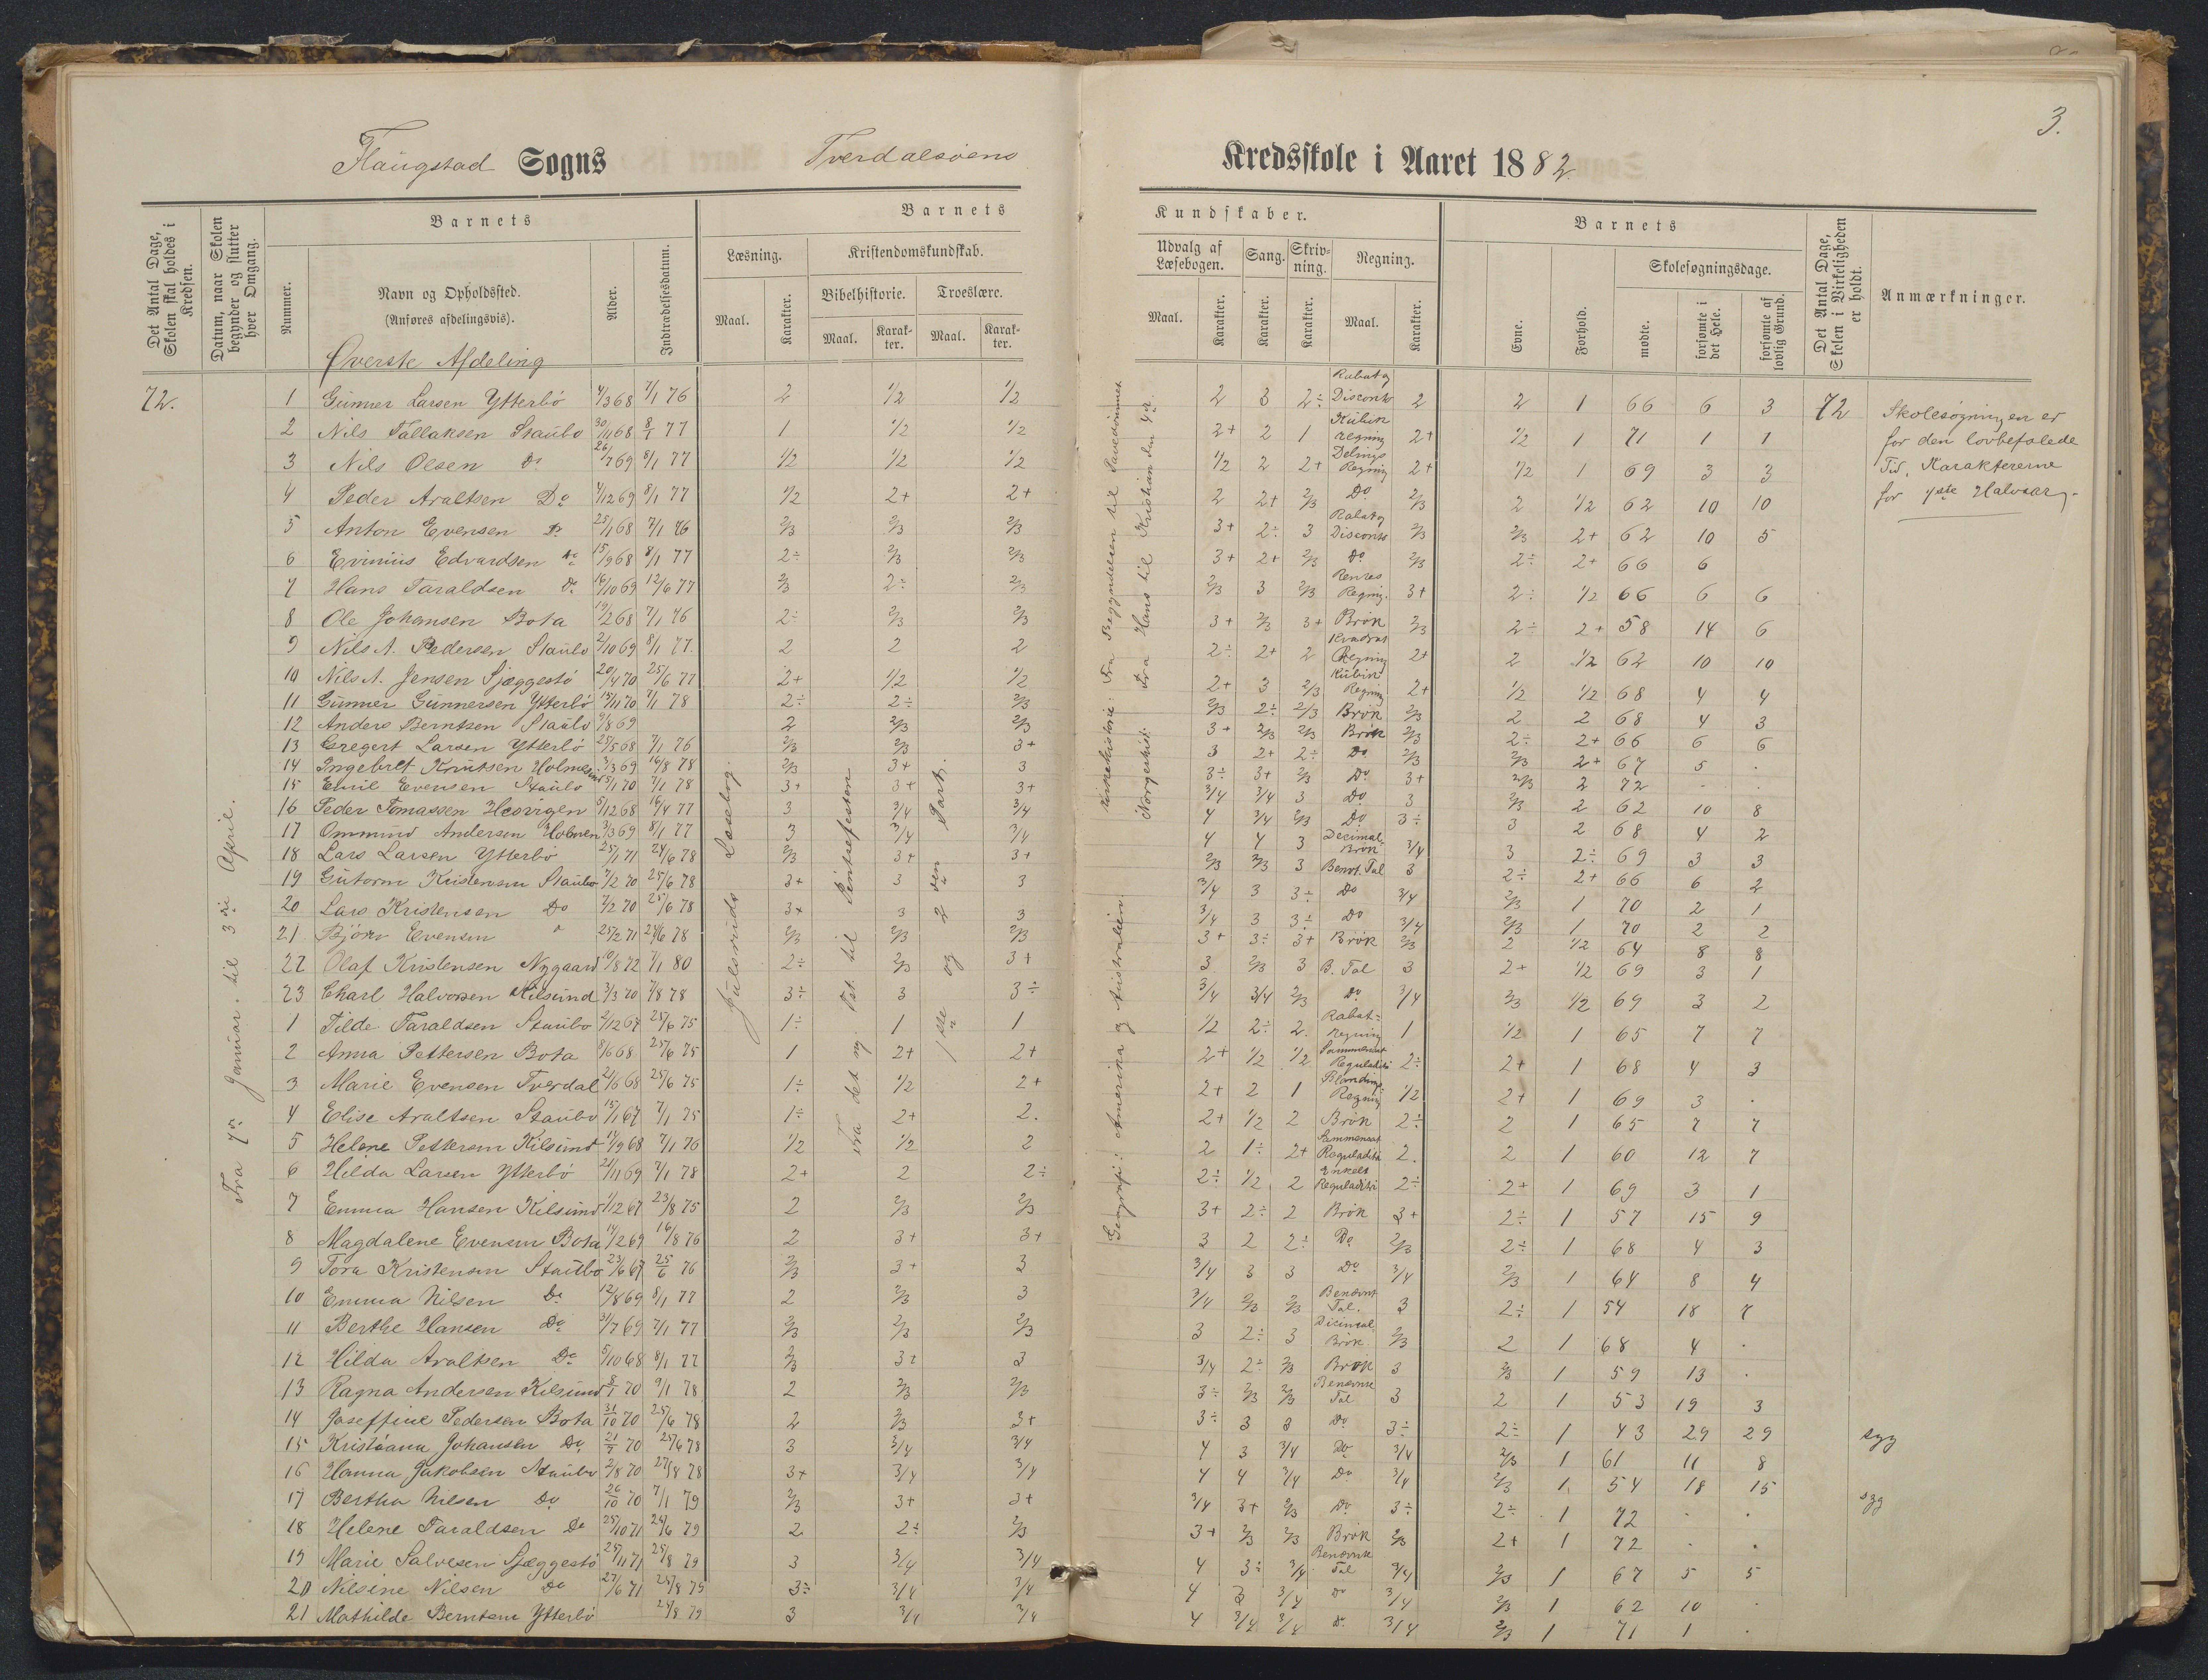 3.
Flaugstad Sogns Tverdalsøens Kredsskole i Aaret 1882.
Det Antal Dage, Skolen skal holdes i Kredsen.
Datum, naar Skolen begynder og slutter hver Omgang.
Barnets
Nummer.
Navn og Opholdssted.
(Anføres afdelingsvis).
Alder.
Indtrædelsesdatum.
Barnets Kundskaber.
Læsning.
Maal. Karakter.
Kristendomskundskab.
Bibelhistorie. Troeslære.
Maal. Karakter. Maal. Karakter.
Udvalg af Læsebogen. Sang. Skrivning. Regning.
Maal. Karakter. Karakter. Karakter. Maal. Karakter.
Barnets
Evne. Forhold.
Skolesøgningsdage.
mødte. forsømte i det Hele. forsømte af lovlig Grund.
Det Antal Dage, Skolen i Virkeligheden er holdt.
Anmærkninger.
Øverste Afdeling
72.
Fra 7de Januar til 3die April.
Jensens Læsebog.
Fra det ny Tst. til Pintsefesten
1ste og 2den Part.
Kirkehistorie: Fra Begyndelsen til Pavedømmet
Norgeshist: Fra Hans til Kristian den 4de.
Geografi: Amerika og Australien
1 Gunner Larsen Ytterbö 4/3 68 7/1 76 2 1/2 1/2 2 3 2÷ Rabat og Disconto 2 2 1 66 6 3 72
2 Nils Tallaksen Staubo 30/11 68 8/1 77 1 1/2 1/2 2+ 2 1 Kubik regning 2+ 1/2 1 71 1 1
3 Nils Olsen Do 26/7 69 8/1 77 1/2 1/2 1/2 1/2 2 2+ Delings Regning 2+ 1/2 1 69 3 3
4 Peder Araltsen Do 4/12 69 8/1 77 1/2 2+ 2+ 2 2+ 2/3 Do 2/3 2 1/2 62 10 10
5 Anton Evensen Do 25/1 68 7/1 76 2/3 2/3 2/3 3+ 2÷ 3 Rabat og Disconto 2/3 2/3 2+ 62 10 5
6 Evinius Edvardsen Do 15/9 68 8/1 77 2÷ 2/3 2/3 3+ 2+ 2/3 Do 2/3 2÷ 2+ 66 6
7 Hans Taraldsen Do 16/10 69 12/6 77 2/3 2÷ 2/3 2/3 3 2/3 Rentes Regning. 3+ 2÷ 1/2 66 6 6
8 Ole Johansen Bota 19/2 68 7/1 76 2÷ 2/3 2/3 3+ 2/3 3+ Brök 2/3 2÷ 2+ 58 14 6
9 Nils A. Pedersen Staubo 2/10 69 8/1 77. 2 2 2 2÷ 2+ 2 Kvadrat Regning 2+ 2 1/2 62 10 10
10 Nils A. Jensen Sjæggestö 20/4 70 25/6 77 2+ 1/2 1/2 2+ 3 2/3 Kubik Regning 2+ 1/2 1/2 68 4 4
11 Gunner Gunnersen Ytterbö 15/11 70 7/1 78 2÷ 2÷ 2/3 2/3 2÷ 2/3 Brök 2/3 2 2 68 4 3
12 Anders Berntsen Staubo 9/8 69 2 2/3 2/3 3+ 2/3 2/3 Brök 2/3 2÷ 2+ 66 6 6
13 Gregert Larsen Ytterbö 25/5 68 7/1 76 2/3 2/3 3+ 3 2+ 2÷ Do 2/3 2/3 2+ 67 5 .
14 Ingebret Knutsen Holmesund 3/3 69 16/8 78 2/3 3+ 3 3÷ 3+ 2/3 Do 3+ 2/3 2 72 . .
15 Emil Evensen Staubo 5/1 70 7/1 78 3+ 3+ 3+ 3/4 3/4 3 Do 3 2/3 2 62 10 8
16 Peder Tomassen Hesvigen 5/12 68 16/4 77 3 3/4 3/4 4 3/4 2/3 Do 3÷ 3 2 68 4 2
17 Ommund Andersen Holmen 3/3 69 8/1 77 3 3/4 3/4 4 4 3 Decimal-Brök 3/4 3 2÷ 69 3 3
18 Lars Larsen Ytterbö 25/1 71 24/6 78 2/3 3+ 3+ 2/3 2/3 3 Benvt. Tal 3 2÷ 2+ 66 6 2
19 Gutorm Kristensen Staubo 7/2 70 25/6 78 3+ 3 3 3/4 3 3÷ Do 3/4 2/3 1 70 2 1
20 Lars Kristensen Do 7/2 70 25/6 78 3+ 3 3 3/4 3 3÷ Do 3/4 2/3 1 70 2 2
21 Björn Evensen " 25/2 71 24/6 78 2/3 2/3 2/3 3+ 3÷ 3+ Brök 2/3 2 1/2 64 8 8
22 Olaf Kristensen Nygaard 10/8 72 7/1 80 2÷ 2/3 3+ 3 2/3 3 B. Tal 3 2+ 1/2 69 3 1
23 Charl Halvorsen Kilsund 3/3 70 7/8 78 3÷ 3 3÷ 3/4 3/4 2/3 Do 3/4 2/3 1/2 69 3 2
1 Tilde Taraldsen Staubo 2/12 67 25/6 75 1÷ 1 1 1/2 2÷ 2. Rabat-Regning 1 1/2 1 65 7 7
2 Anna Pettersen Bota 8/6 68 25/6 75 1 2+ 2+ 2+ 1/2 1/2 Sammensat Reguladitri 2÷ 2+ 1 68 4 3
3 Marie Evensen Tverdal 21/6 68 25/6 75 1÷ 1/2 2+ 2+ 2 1 Blandings-Regning 1/2 2+ 1 69 3 .
4 Elise Araltsen Staubo 15/1 67 7/1 75 1÷ 2+ 2. 2+ 1/2 2 Brök 2÷ 2 1 65 7 7
5 Helene Pettersen Kilsund 14/9 68 7/1 76 1/2 1/2 2 2 1÷ 2+ Sammensat Reguladitri 2. 2 1 60 12 7
6 Hilda Larsen Ytterbö 21/11 69 7/1 78 2+ 2 2÷ 2÷ 1/2 2 Enkelt Reguladitri 2÷ 2+ 1 69 3 1
7 Emma Hansen Kilsund 1/12 67 23/8 75 2 2/3 2/3 3+ 2÷ 2 Brök 3+ 2÷ 1 57 15 9
8 Magdalene Evensen Bota 14/2 69 16/8 76 2 3+ 3+ 3 2 2÷ Do 2/3 2÷ 1 68 4 3
9 Tora Kristensen Staubo 23/6 67 25/6 76 2/3 3+ 3 3/4 3 3 Do 3/4 2/3 1 64 8 4
10 Emma Nilsen Do 12/8 69 8/1 77 2 2/3 3 3/4 2/3 2/3 Benævnt Tal. 3 2÷ 1 54 18 7
11 Berthe Hansen Do 31/7 69 7/1 77 2/3 2/3 2/3 3 2÷ 3 Dicimal-Brök. 2/3 2 1 68 4 .
12 Hilda Araltsen Do 5/10 68 8/1 77 2/3 3+ 3 3/4 2÷ 2/3 Brök 3 2/3 1 59 13 .
13 Ragna Andersen Kilsund 8/1 70 9/1 78 2 2/3 2/3 3÷ 2/3 2/3 Benævnte Tal 3 2 1 53 19 3
14 Joseffine Pedersen Bota 31/10 70 25/6 78 2 2/3 3+ 3÷ 3 3 Do 3÷ 2÷ 1 43 29 29 syg
15 Kristiana Johansen Do 21/7 70 25/6 78 3 3/4 3/4 4 3 3/4 Do 3/4 2/3 1 61 11 8
16 Hanna Jakobsen Staubo 2/8 70 27/8 78 3+ 3/4 3/4 4 4 3/4 Do 3/4 2/3 1 54 18 15 syg
17 Bertha Nilsen Do 26/10 70 7/1 79 2/3 3+ 3+ 3/4 3+ 2/3 Do 3÷ 2÷ 1 72 . .
18 Helene Taraldsen Do 25/10 71 24/6 79 2 2÷ 2/3 3+ 2/3 2/3 Brök 2/3 2+ 1 72 . .
19 Marie Salvesen Sjæggestö 25/11 71 25/8 79 3 3/4 3/4 4 3÷ 3/4 Benævnte Tal 3/4 2/3 1 67 5 5
20 Nilsine Nilsen Do 27/6 71 25/8 79 3÷ 3/4 3/4 4 3 3/4 Do 3/4 2/3 1 62 10 .
21 Mathilde Berntsen Ytterbö 24/8 79 3 3/4 3/4 4 3/4 3/4 Do 3/4 2/3 1 71 1 .
Skolesøgningen er
for den lovbefalede
Tid. Karaktererne
for 1ste Halvaar.